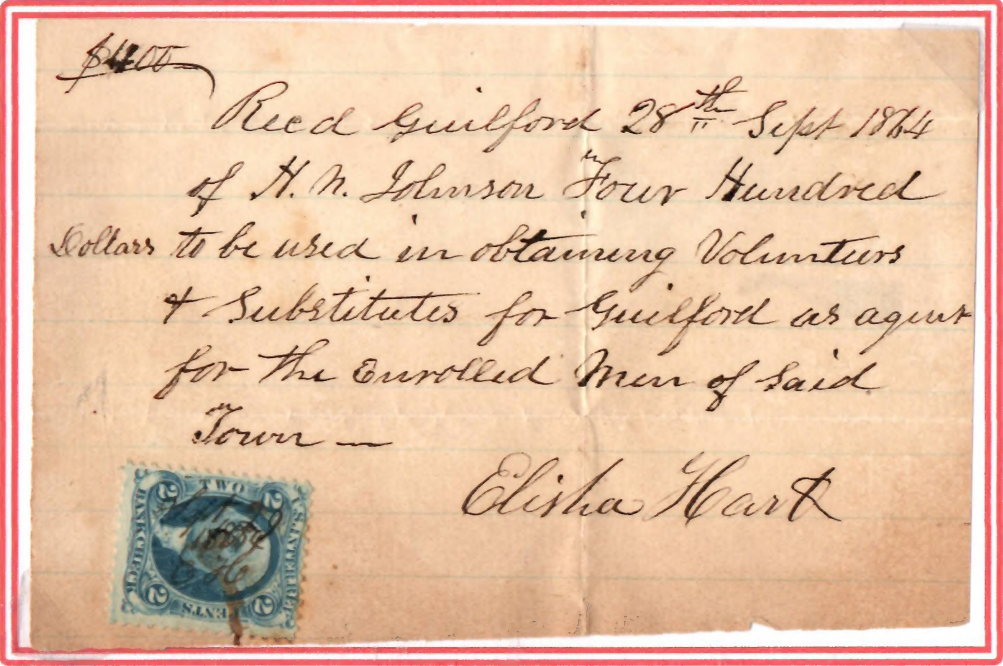 $400
Recd Guilford 28th Sept 1864
of H. N. Johnson Four Hundred
Dollars to be used in obtaining Volunteers
& Substitutes for Guilford as agent
for the Enrolled Men of said
Town —
Elisha Hart
TWO
BANK CHECK
U.S. INTER. REV.
CENTS
2
2
2
2
E H